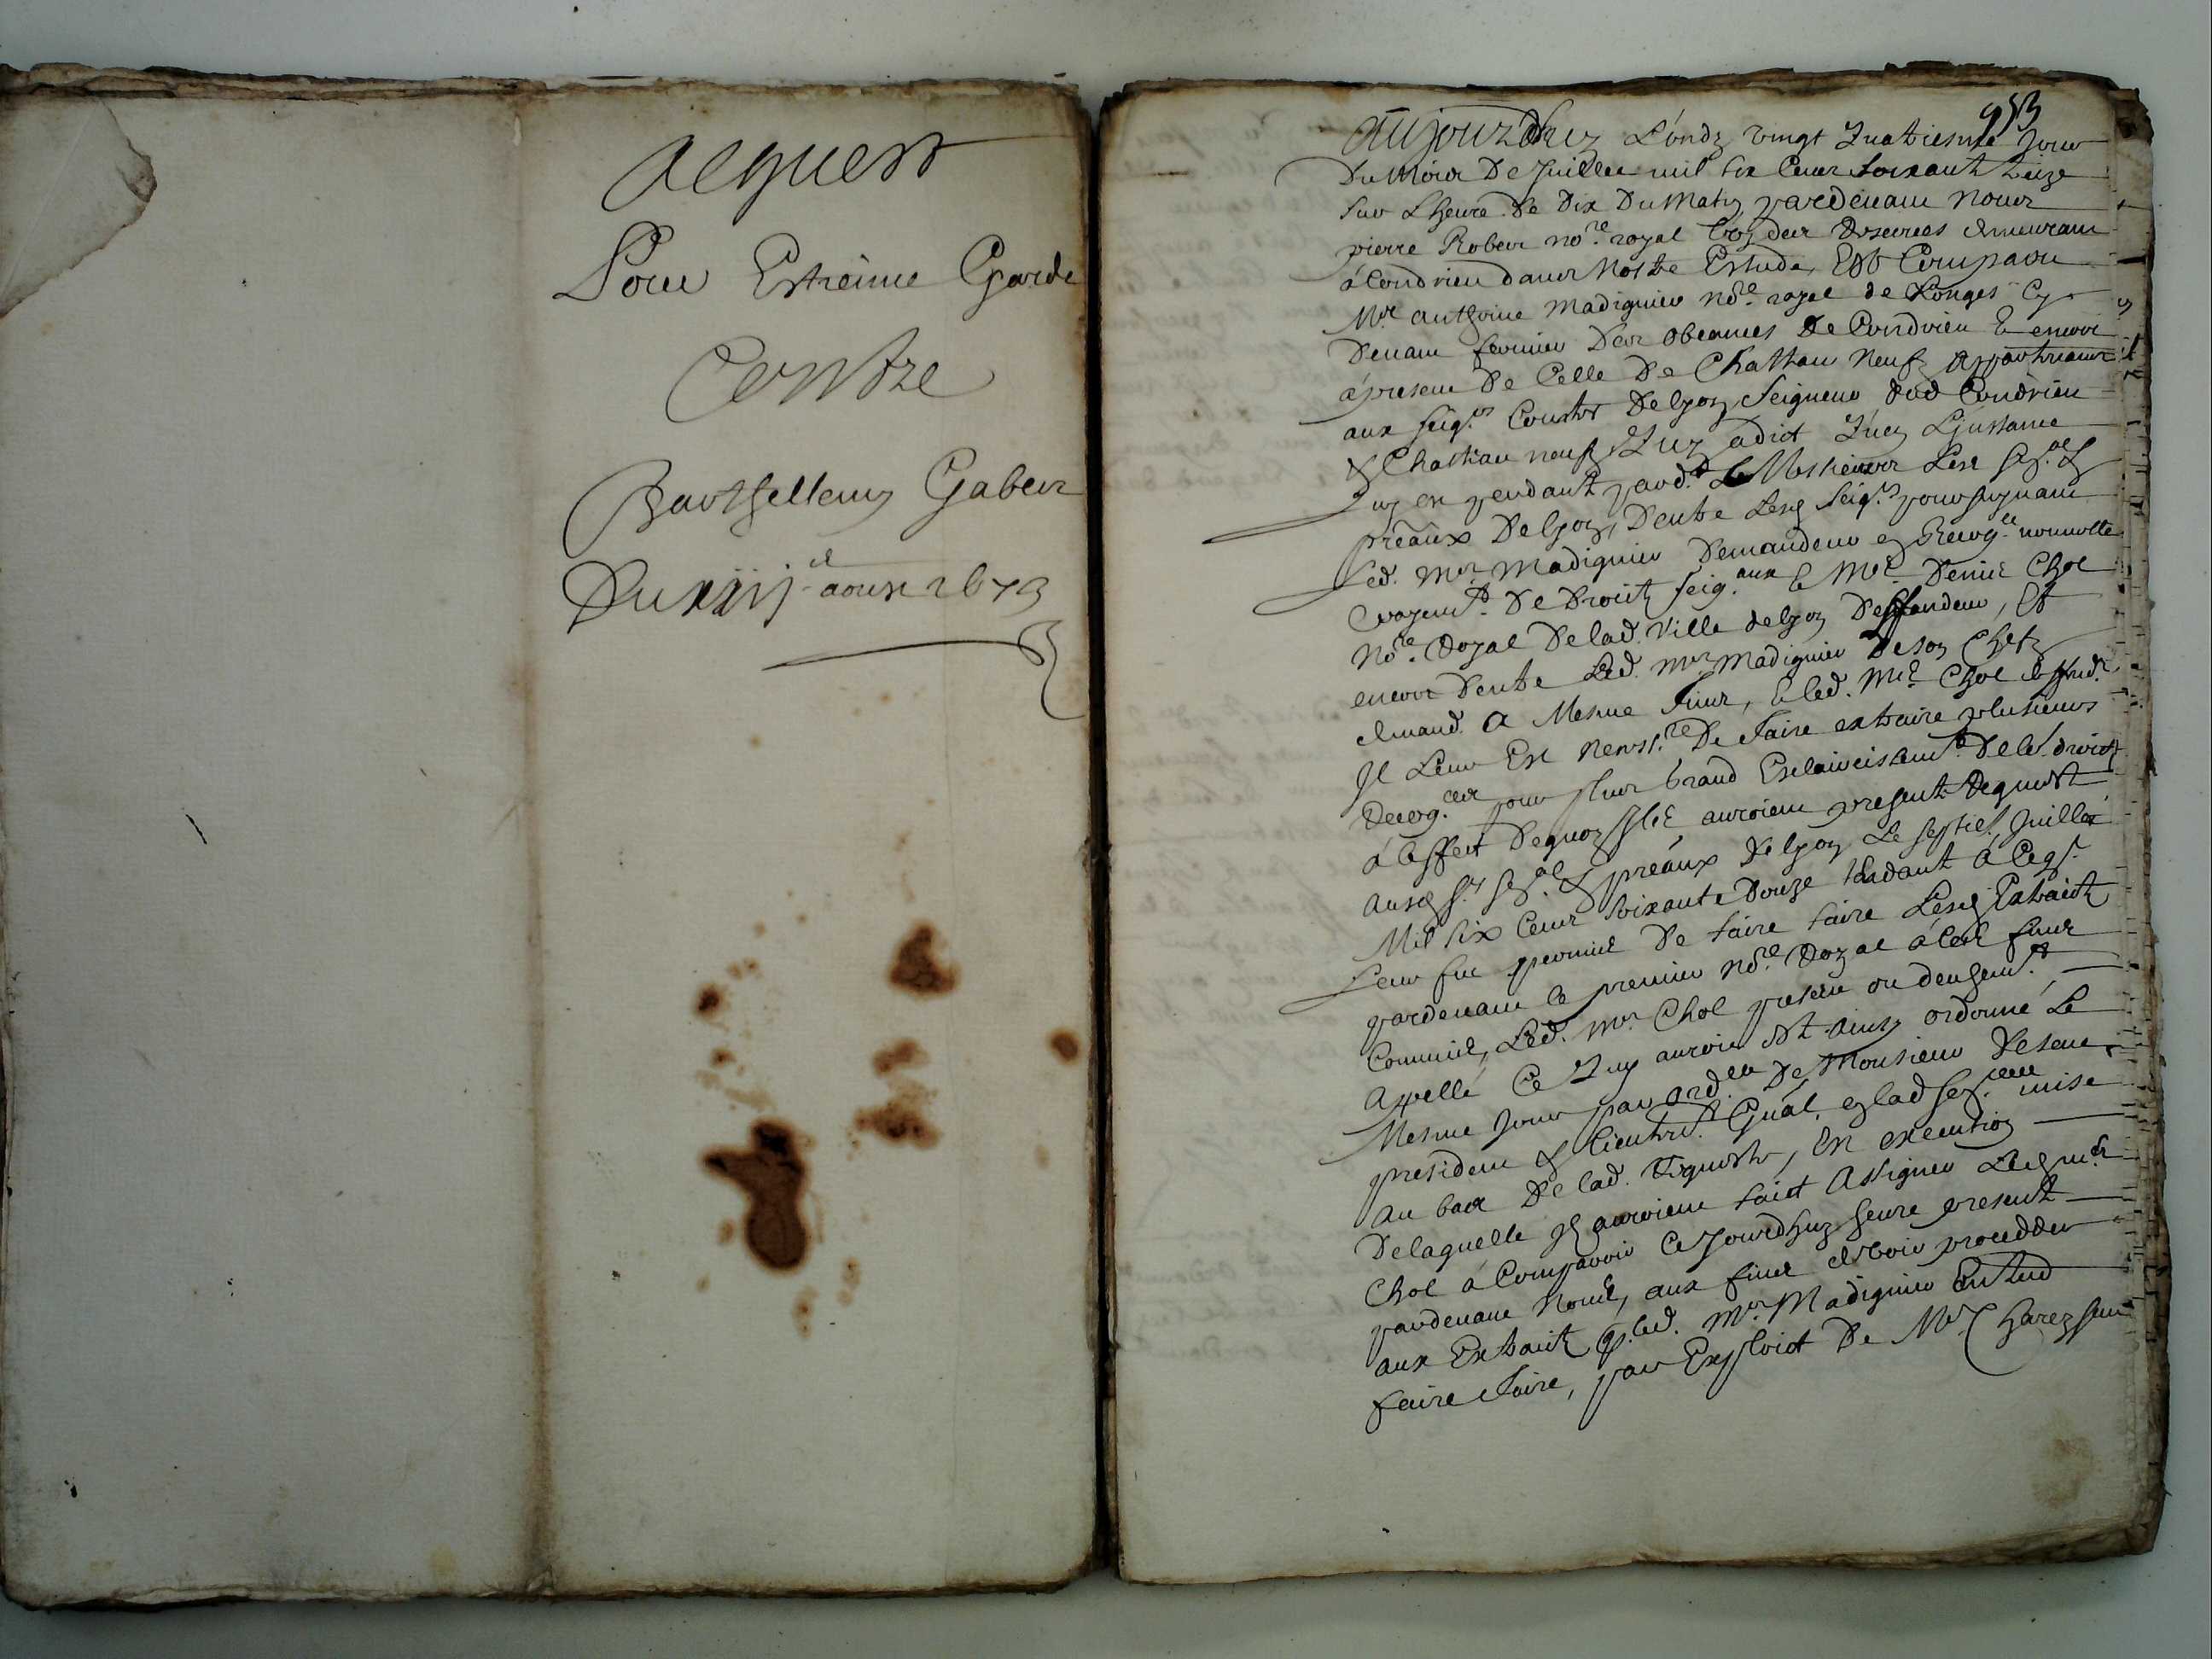 Acquest
Pour Estienne Garde
Contre
Barthellemy Gabeur
Du xiiij aoust 1673
953
Aujourdhuy Lundy vingt quatriesme jour
Du Mois De Juillet mil six Cens soixante treize
sur Lheure de dix Du Matin pardevant Nous
pierre Robert no.re royal demeurant
à Condrieu dans Nostre Estude, Est Comparu
M.e Anthoine Madignier no.re royal de Longes Cy
Devant fermier Des obeances De Condrieu & encor
à present De Celle De Chasteau Neuf appartenant
aux seig.rs Comtes De Lyon Seigneurs dud Condrieu
& Chasteau neuf, Quy a dict Quen L'instance
quy est pendante pard.t Messieurs Les
preaux De Lyon, Dentre Lesd Seig.rs poursuyvant
Led. M.e Madignier Demandeur en Recog.ce nouvelle
& payem.t De Droictz seig.aux & M.e Denis Chol
No.re Royal De lad. Ville de Lyon Deffandeur, Et
encor Dentre Led. M.e Madignier De son Chef
demand. A Mesme fins, & led. M.e Chol deffand.
Il Leur Est necess.re De faire extraire plusieurs
Recog.ces pour plus Grand Esclaircissem.t Desd. droictz
à leffect Dequoy Ilz auroient presenté Requeste
Ausd S.rs preaux De Lyon Le septie. Juillet
Mil six Cens soixante Douze tendant à Ce q.
Leur fut permis De faire faire Lesd Extraictz
pardevant le premier no.re Royal à Ces fins
Commis, Led. M.e Chol present ou deuhem.t
Appellé Ce Quy auroit Esté ainsy ordonné Le
Mesme Jour par ord.ce De Monsieur De seve
president & lieuten.t Gnal, en lad mise
Au bas De lad. Requeste, En execution
De laquelle Il auroient faict Assigner Led M.e
Chol à Comparoir Cejourdhuy heure presente
pardevant Nous, aux fins de voir procedder
aux Extraictz q. led. M.e Madignier Entend
faire faire, par Exploict De M.e